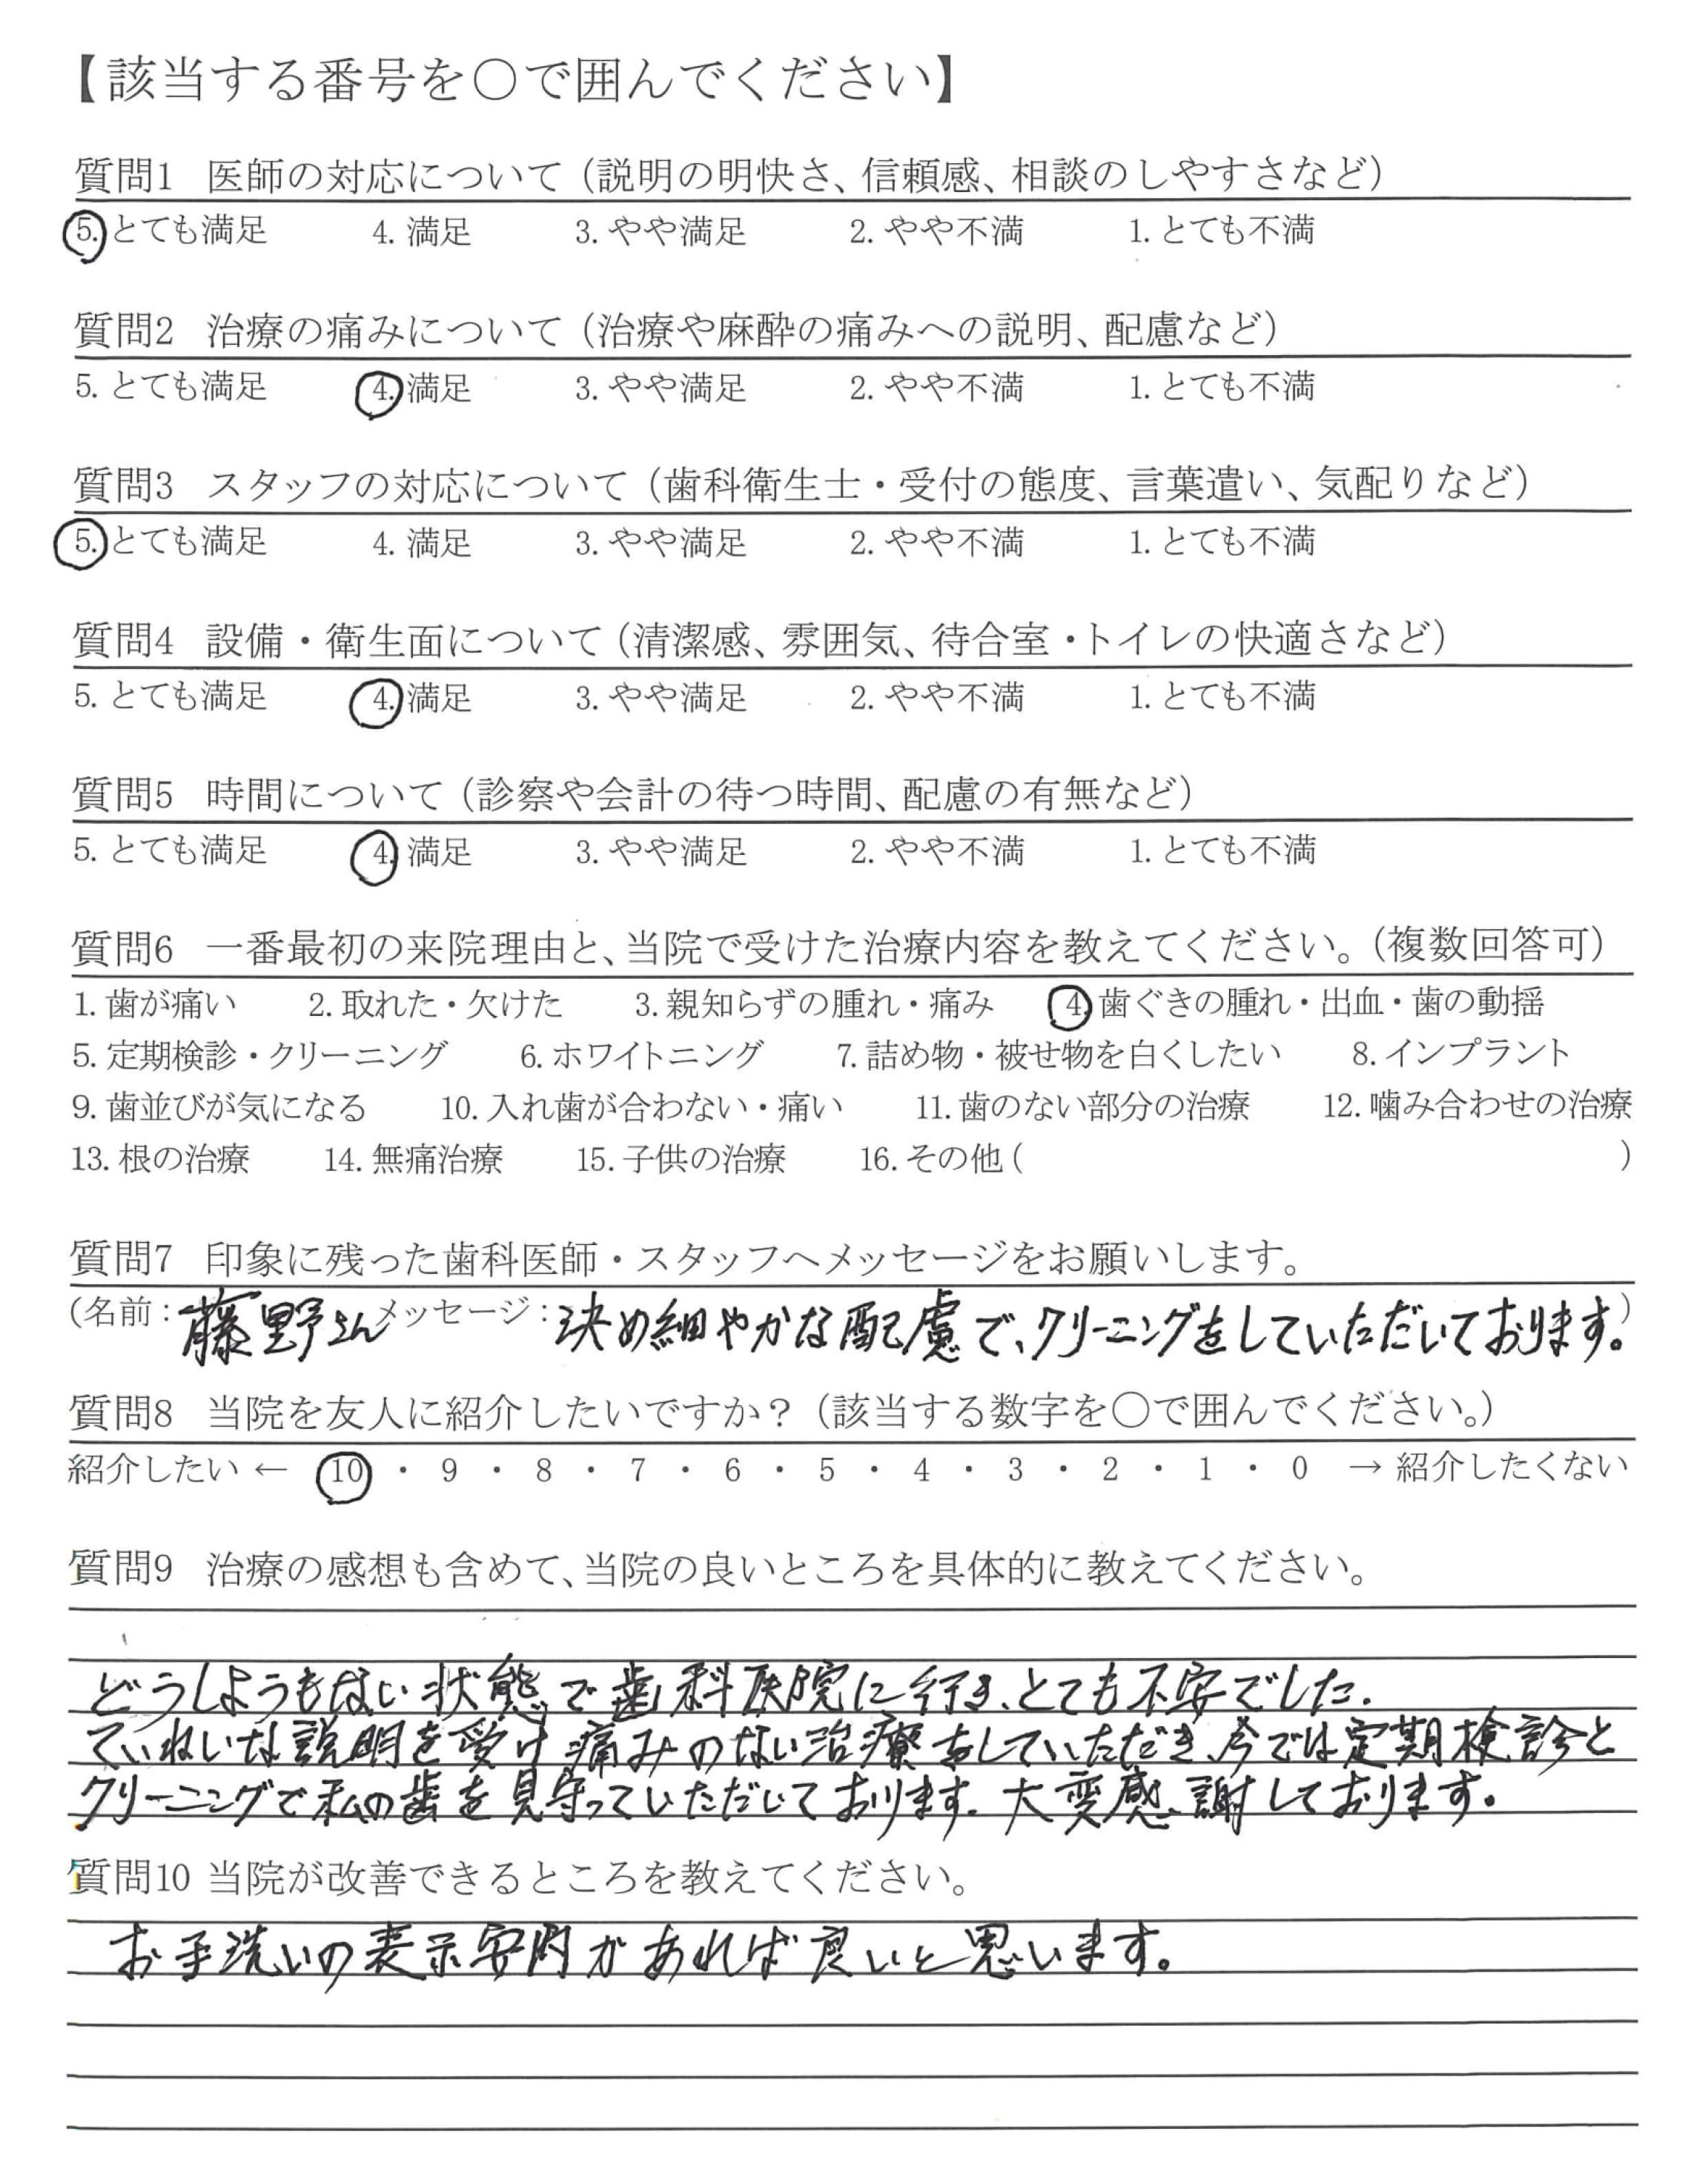 【該当する番号を〇で囲んでください】
質問1 医師の対応について（説明の明快さ、信頼感、相談のしやすさなど）
5. とても満足 4. 満足 3. やや満足 2. やや不満 1. とても不満
質問2 治療の痛みについて（治療や麻酔の痛みへの説明、配慮など）
5. とても満足 4. 満足 3. やや満足 2. やや不満 1. とても不満
質問3 スタッフの対応について（歯科衛生士・受付の態度、言葉遣い、気配りなど）
5. とても満足 4. 満足 3. やや満足 2. やや不満 1. とても不満
質問4 設備・衛生面について（清潔感、雰囲気、待合室・トイレの快適さなど）
5. とても満足 4. 満足 3. やや満足 2. やや不満 1. とても不満
質問5 時間について（診察や会計の待つ時間、配慮の有無など）
5. とても満足 4. 満足 3. やや満足 2. やや不満 1. とても不満
質問6 一番最初の来院理由と、当院で受けた治療内容を教えてください。（複数回答可）
1. 歯が痛い 2. 取れた・欠けた 3. 親知らずの腫れ・痛み 4. 歯ぐきの腫れ・出血・歯の動揺
5. 定期検診・クリーニング 6. ホワイトニング 7. 詰め物・被せ物を白くしたい 8. インプラント
9. 歯並びが気になる 10. 入れ歯が合わない・痛い 11. 歯のない部分の治療 12. 噛み合わせの治療
13. 根の治療 14. 無痛治療 15. 子供の治療 16. その他（ ）
質問7 印象に残った歯科医師・スタッフへメッセージをお願いします。
（名前：藤野さん メッセージ：決め細やかな配慮で、クリーニングをしていただいております。）
質問8 当院を友人に紹介したいですか？（該当する数字を〇で囲んでください。）
紹介したい ← 10 ・ 9 ・ 8 ・ 7 ・ 6 ・ 5 ・ 4 ・ 3 ・ 2 ・ 1 ・ 0 → 紹介したくない
質問9 治療の感想も含めて、当院の良いところを具体的に教えてください。
どうしようもない状態で歯科医院に行き、とても不安でした。
ていねいな説明を受け痛みのない治療をしていただき、今では定期検診と
クリーニングで私の歯を見守っていただいております。大変感謝しております。
質問10 当院が改善できるところを教えてください。
お手洗いの表示案内があれば良いと思います。